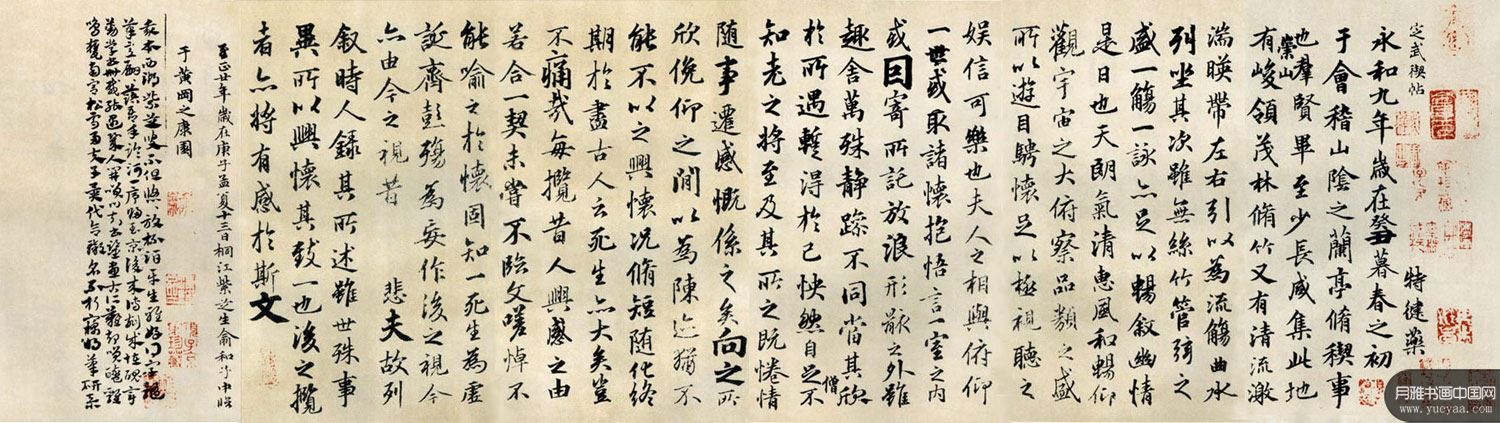 定武禊帖
特健藥
永和九年歲在癸丑暮春之初
于會稽山陰之蘭亭脩稧事
也羣賢畢至少長咸集此地
崇山
有峻領茂林脩竹又有清流激
湍暎帶左右引以為流觴曲水
列坐其次雖無絲竹管弦之
盛一觴一詠亦足以暢敘幽情
是日也天朗氣清惠風和暢仰
觀宇宙之大俯察品類之盛
所以遊目騁懷足以極視聽之
娛信可樂也夫人之相與俯仰
一世或取諸懷抱悟言一室之內
或因寄所託放浪形骸之外雖
趣舍萬殊靜躁不同當其欣
於所遇蹔得於己怏然自足不
僧
知老之將至及其所之既惓情
隨事遷感慨係之矣向之所
欣俛仰之閒以為陳迹猶不
能不以之興懷況脩短隨化終
期於盡古人云死生亦大矣豈
不痛哉每攬昔人興感之由
若合一契未嘗不臨文嗟悼不
能喻之於懷固知一死生為虛
誕齊彭殤為妄作後之視今
亦由今之視昔 悲夫故列
敘時人錄其所述雖世殊事
異所以興懷其致一也後之攬
者亦將有感於斯文
至正廿年歲在庚子孟夏十三日桐江紫芝生俞和子中臨
于黃岡之康園
月雅书画中国网
www.yueyaa.com